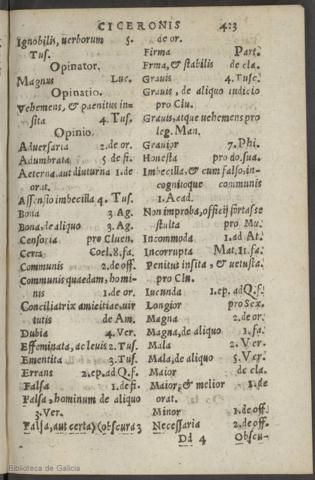 CICERONIS 423
Ignobilis, verborum 5.
Tus.
Opinator.
Magnus Luc.
Opinatio.
Vehemens, & pænitus in-
sita 4. Tus.
Opinio.
Adversaria 2. de or.
Adumbrata 5 de fi.
Aeterna, aut diuturna 1. de
orat.
Assensio imbecilla 4. Tus.
Bona 3. Ag.
Bona, de aliquo 3. Ag.
Censoria pro Cluen.
Certa Coel. 8. fa.
Communis 2. de off.
Communis quædam, homi-
nis 1. de or.
Conciliatrix amicitiæ, uir
tutis de Am.
Dubia 4. Ver.
Effeminata, ac leuis 2. Tus.
Ementita 3. Tus.
Errans 2. ep. ad Q. f.
Falsa 1. de fi.
Falsa, hominum de aliquo
3. Ver.
Falsa, aut certa) (obscura 3
de or.
Firma Part.
Frma, & stabilis de cla.
Grauis 4. Tusc.
Grauis, de aliquo iudicio
pro Clu.
Grauis, atque uehemens pro
leg. Man.
Grauior 7. Phi.
Honesta pro do. sua.
Imbecilla, & cum falso, in-
cognitoque communis
1. Acad.
Non improba, officij fortasse
stulta pro Mu.
Incommoda 1. ad At.
Incorrupta Mat. 11. fa.
Penitus insita, & uetusta.
pro Clu.
Iucunda 1. ep. ad Q. f.
Longior pro Sex.
Magna 2. de or.
Magna, de aliquo 1. fa.
Mala 2. Ver.
Mala, de aliquo 5. Ver.
Maior de cla.
Maior, & melior 1. de
orat.
Minor 1. de off.
Necessaria 2. de off.
Dd 4 Obscu-
Biblioteca de Galicia